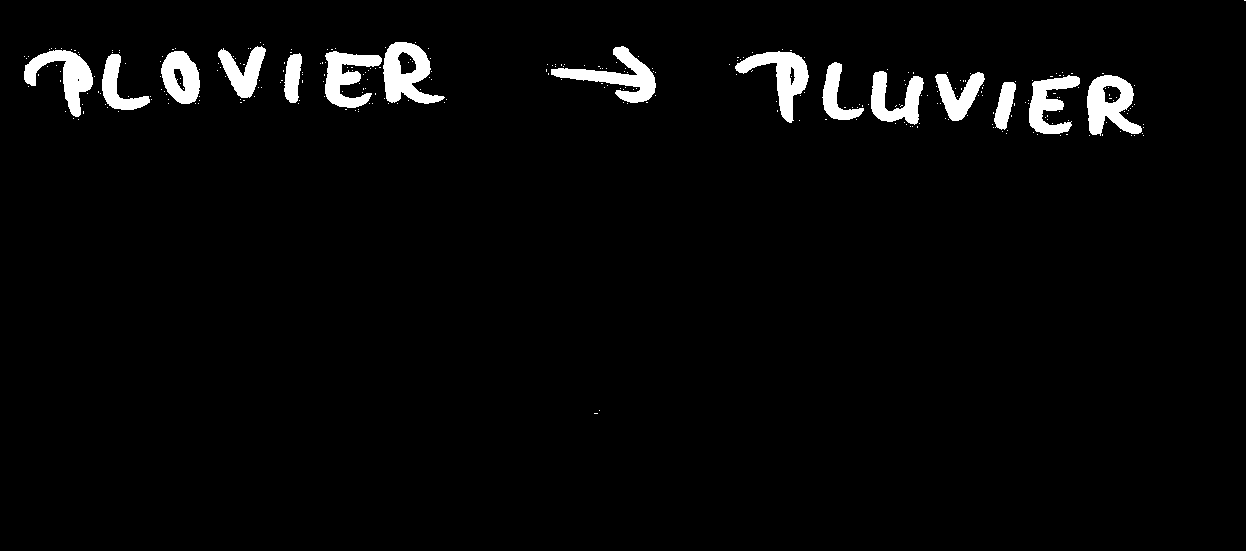 PLOVIER → PLUVIER